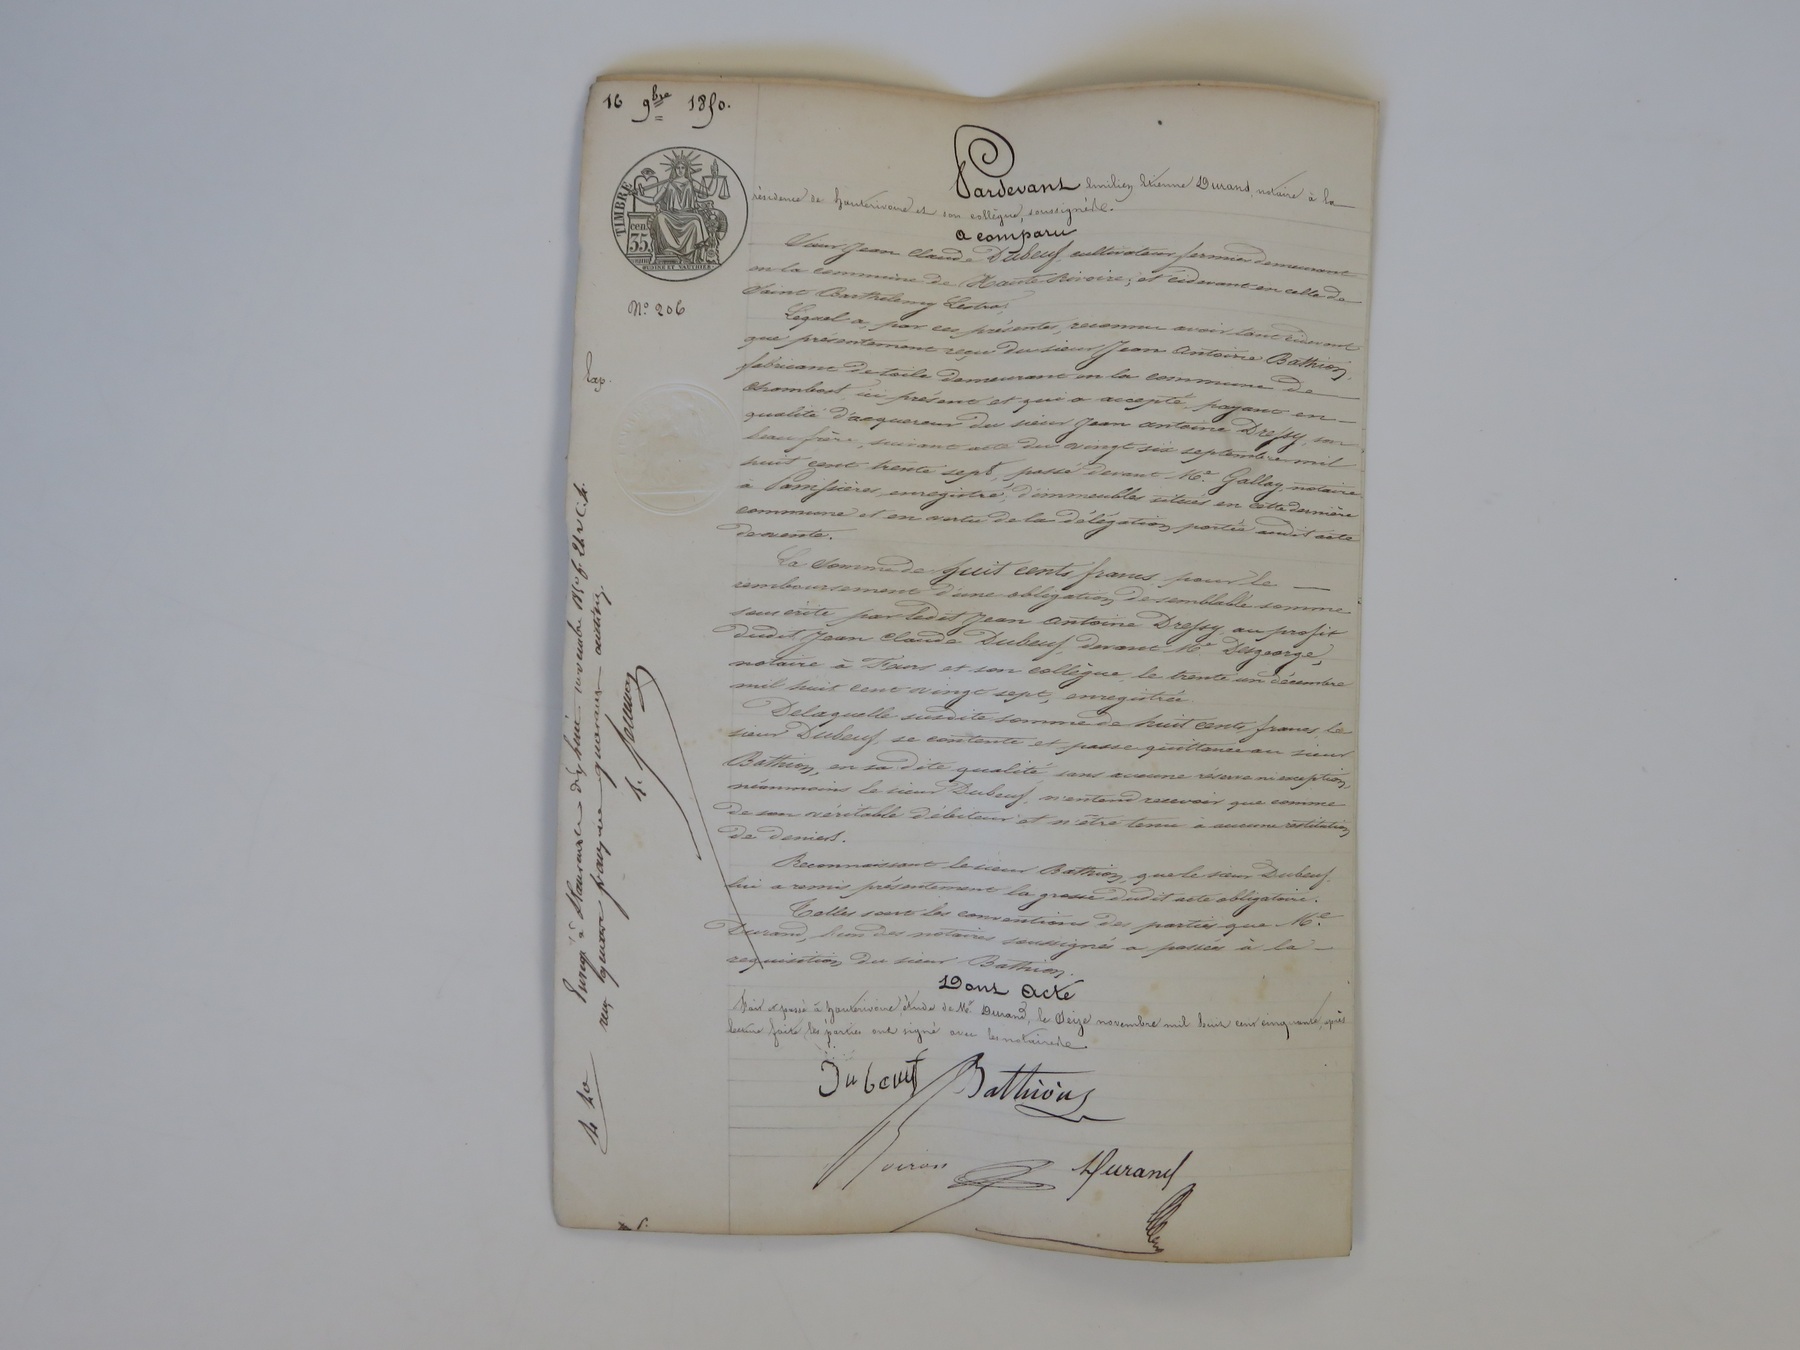 16 9bre 1850.
TIMBRE
cen. 35
Nº 206
Pardevant Emilien Etienne Durand, notaire à la
résidence de hauterivoire et son collègue, soussignés.
a comparu
Sieur Jean Claude Dubeuf, cultivateur fermier demeurant
en la commune de Hauterivoire, et cidevant en celle de
Saint Barthélemy Lestra,
Lequel a, par ces présentes, reconnu avoir tant cidevant
que présentement reçu du sieur Jean Antoine Bathion,
fabricant de toile demeurant en la commune de
Chambost, ici présent et qui a accepté, payant en
qualité d'acquereur du sieur Jean Antoine Dressy, son
beau frère, suivant acte du vingt six septembre mil
huit cent trente sept, passé devant Me. Gallay, notaire
à Panissières, enregistré, d'immeubles situés en cette dernière
commune et en vertu de la délégation portée audit acte
de vente.
La somme de huit cents francs pour le
remboursement d'une obligation de semblable somme
souscrite par ledit Jean Antoine Dressy, au profit
dudit Jean Claude Dubeuf, devant Me Desgeorge,
notaire à Feurs et son collègue, le trente un décembre
mil huit cent vingt sept, enregistrée.
De laquelle susdite somme de huit cents francs le
sieur Dubeuf, se contente et passe quittance au sieur
Bathion, en sa dite qualité sans aucune réserve ni exception,
néanmoins le sieur Dubeuf, n'entend recevoir que comme
de son véritable débiteur et n'être tenu à aucune restitution
de deniers.
Reconnaissant le sieur Bathion, que le sieur Dubeuf
lui a remis présentement la grosse dudit acte obligatoire.
Telles sont les conventions des parties que Me
Durand, l'un des notaires soussignés a passées à la
requisition du sieur Bathion.
Dont Acte
Fait et passé à hauterivoire, étude de Me Durand, le Seize novembre mil huit cent cinquante, après
lecture faite, les parties ont signé avec les notaires.
Dubeuf Bathion
Durand
Enregé à St Laurent le dix huit novembre 1850 f. 26 v. C. 4.
reçu quatre francs quarante centimes
4 40